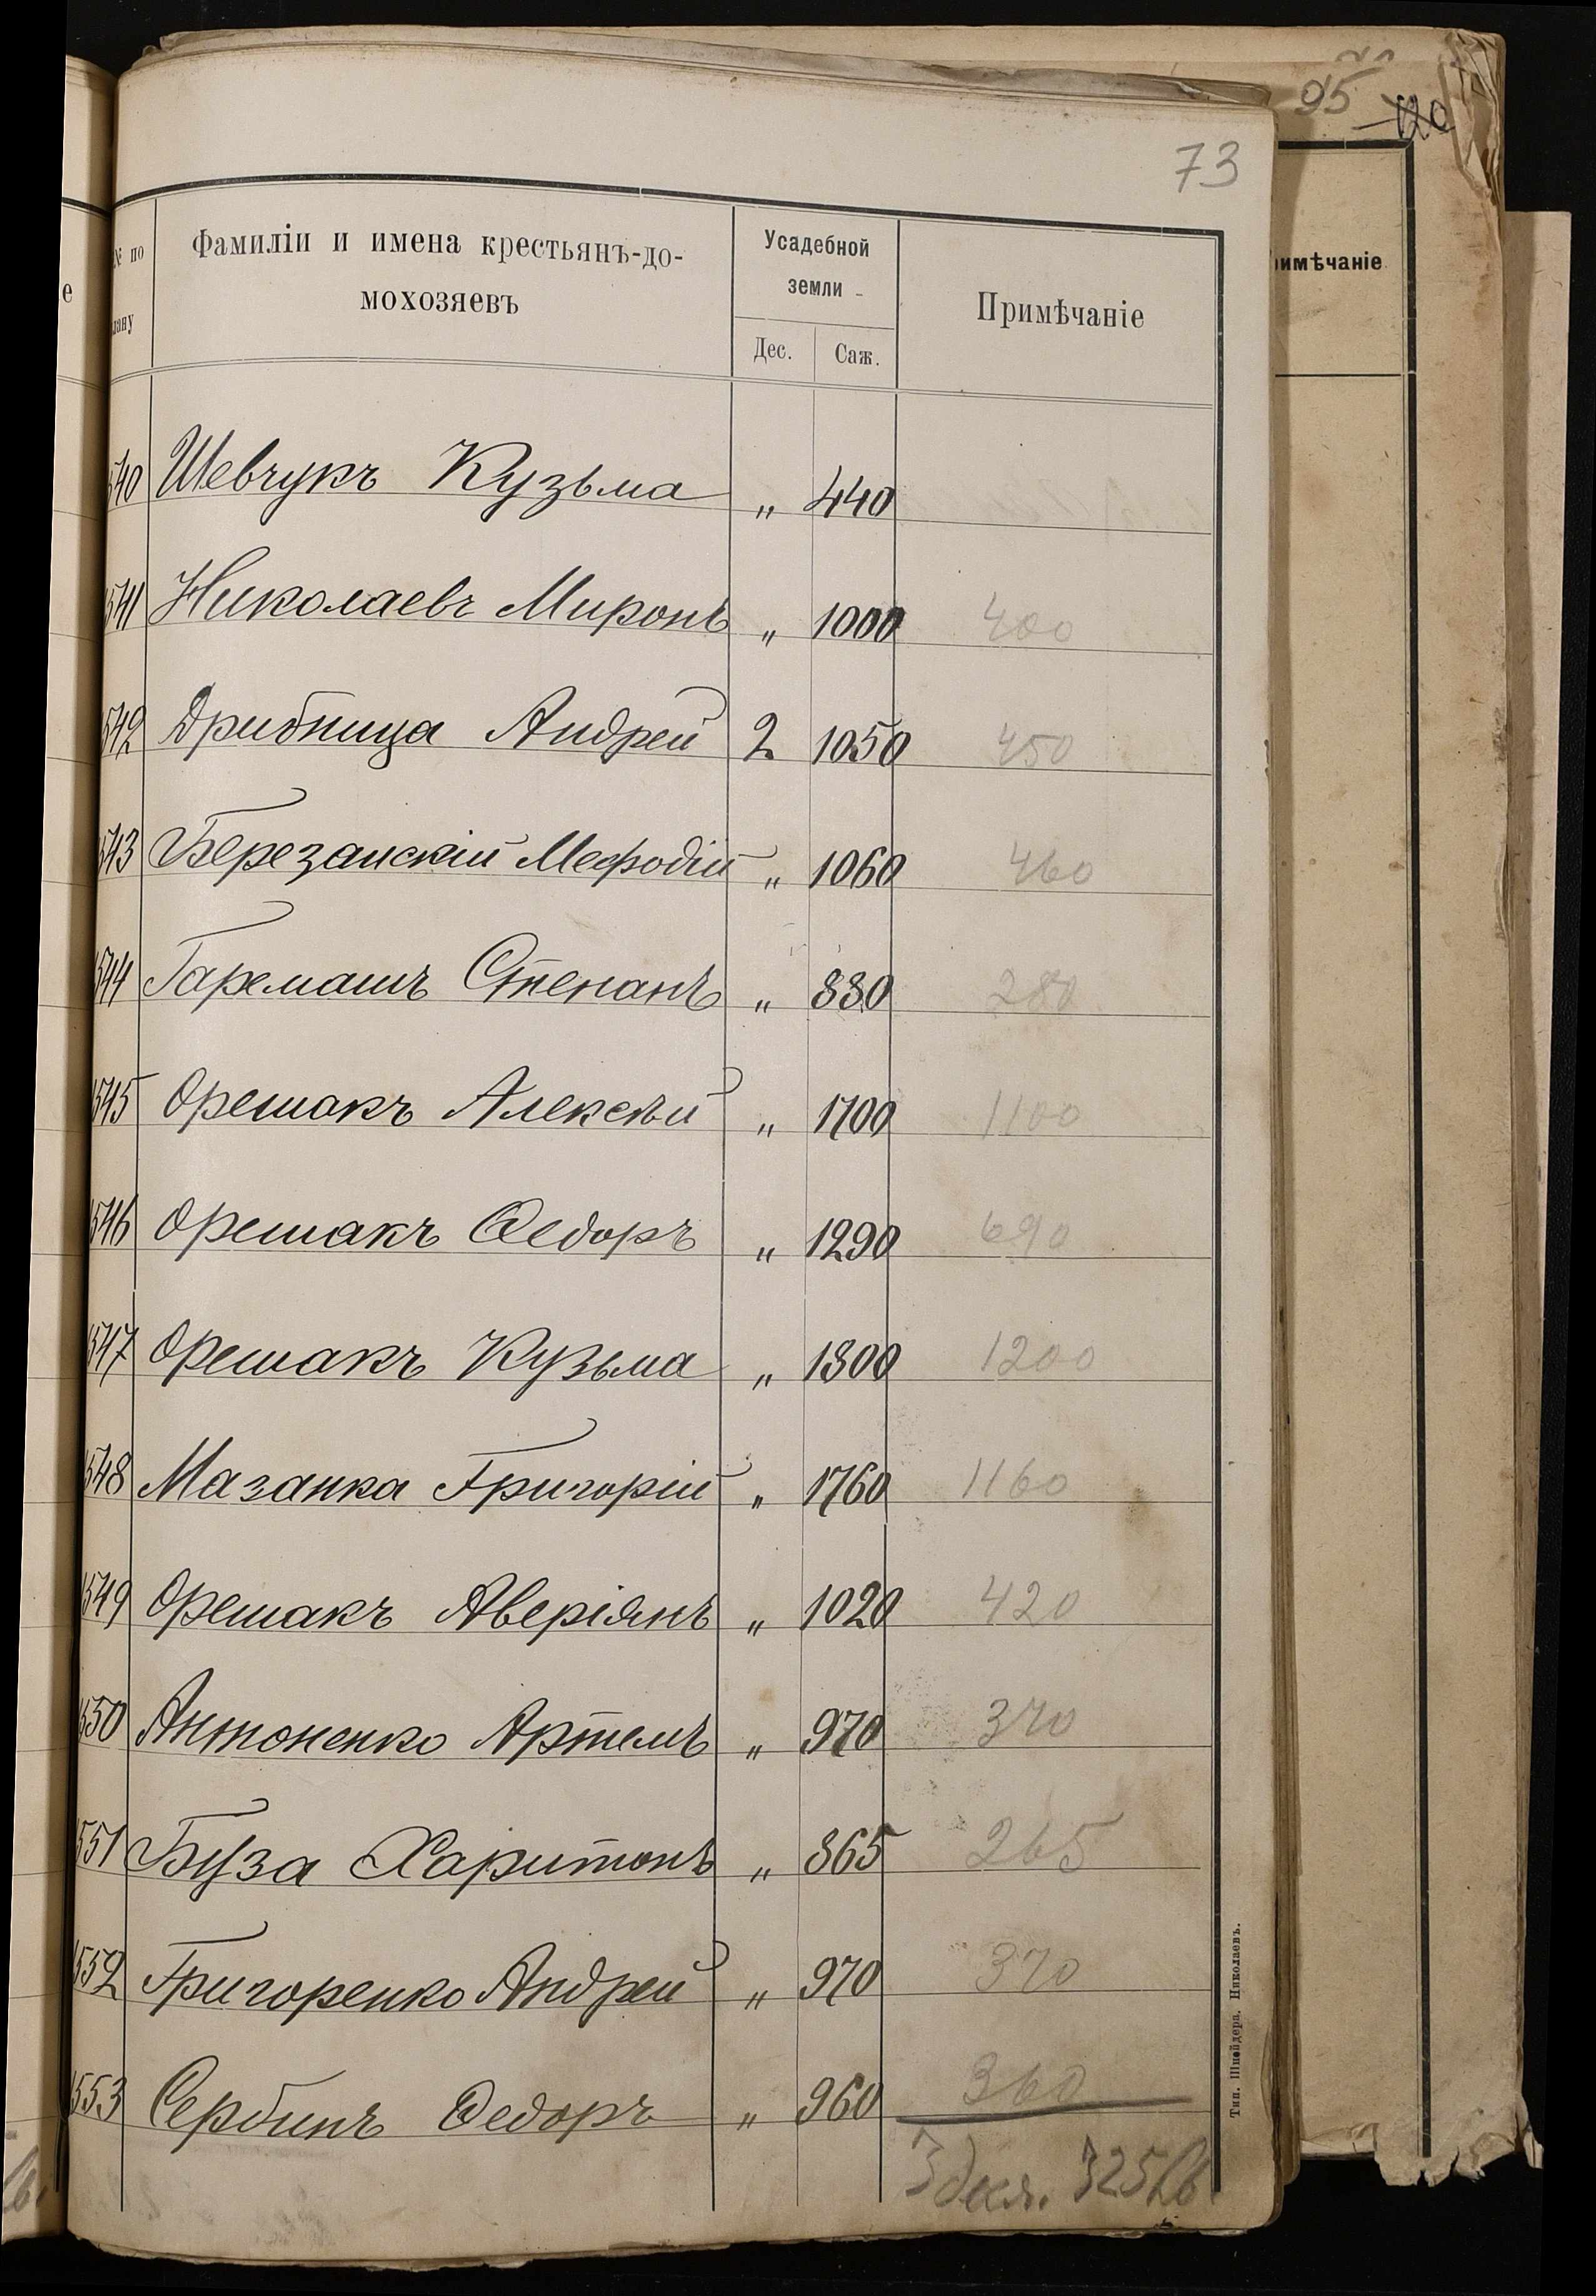 95 120
73
№ по
плану
Фамиліи и имена крестьянъ-до-
мохозяевъ
Усадебной
земли
Дес.
Саж.
Примѣчаніе
римѣчаніе
е
540 Шевчукъ Кузьма „ 440
541 Николаевъ Миронъ „ 1000 400
542 Дрибница Андрей 2 1050 450
543 Березанскій Мефодій „ 1060 460
544 Гаремашъ Степанъ „ 880 280
545 Орешакъ Алексѣй „ 1700 1100
546 Орешакъ Ѳедоръ „ 1290 690
547 Орешакъ Кузьма „ 1800 1200
548 Мазанка Григорій „ 1760 1160
549 Орешакъ Аверіянъ „ 1020 420
550 Антоненко Артемъ „ 970 370
551 Буза Харитонъ „ 865 265
552 Григоренко Андрей „ 970 370
553 Сербинъ Ѳедоръ „ 960 360
3 дес. 325
Тип. Шнейдера. Николаевъ.